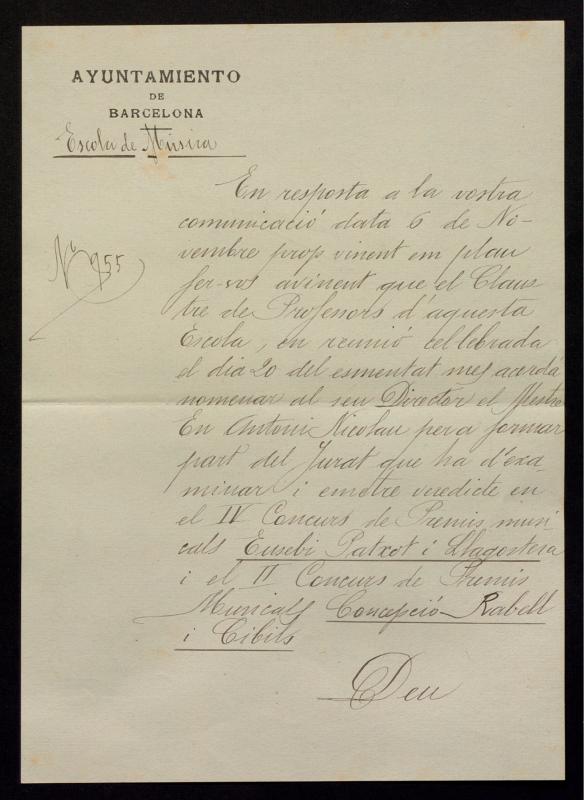 AYUNTAMIENTO
DE
BARCELONA
Escola de Música
Nº 955
En resposta a la vostra
comunicació data 6 de No-
vembre prop vinent em plau
fer-vos avinent que el Claus
tre de Professors d'aquesta
Escola, en reunió cel·lebrada
el dia 20 del esmentat mes acordá
nomenar al seu Director el Mestre
En Antoni Nicolau pera formar
part del Jurat que ha d'exa-
minar i emetre veredicte en
el IV Concurs de Premis musi
cals Eusebi Patxot i Llagostera
i el II Concurs de Premis
Musicals Concepció Rabell
i Cibils
Deu